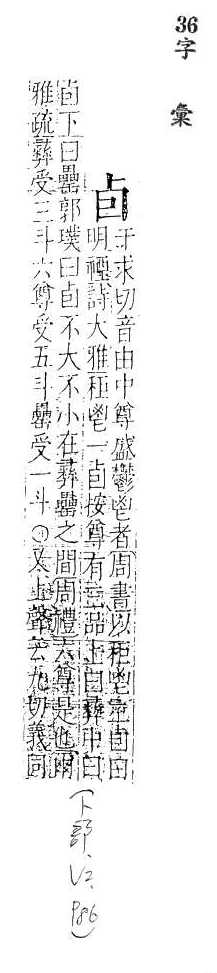 36字 彙
卣
于求切音由中尊盛鬱鬯者周書以秬鬯二卣曰
明禋詩大雅秬鬯一卣按尊有三品上曰彝中曰
卣下曰罍郭璞曰卣不大不小在彝罍之間周禮六尊是也爾
雅疏彝受三斗六尊受五斗罍受一斗○又上聲云九切義同
(卜部、V2、P86)